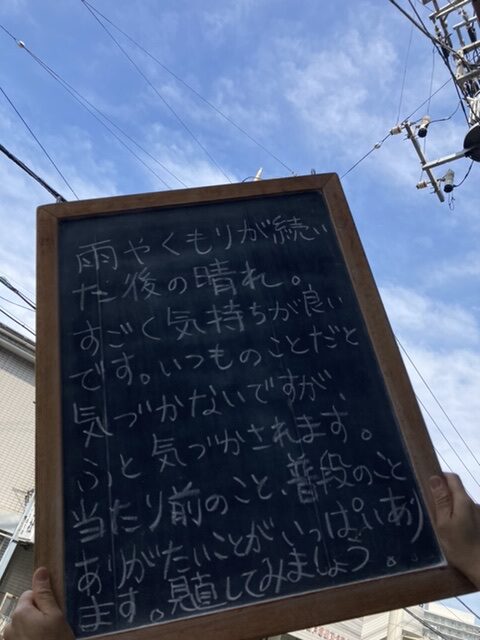 雨やくもりが続い
た後の晴れ。
すごく気持ちが良い
です。いつものことだと
気づかないですが、
ふと気づかされます。
当たり前のこと、普段のこと
ありがたいことがいっぱいあり
ます。見直してみましょう。